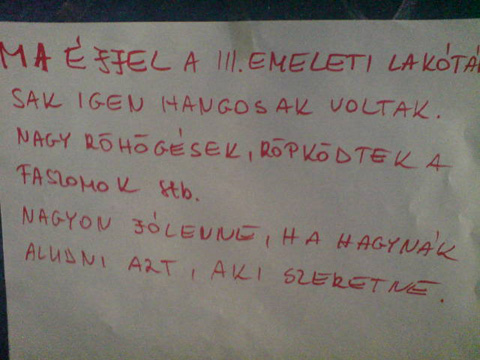 MA ÉJJEL A III. EMELETI LAKÓTÁR
SAK IGEN HANGOSAK VOLTAK.
NAGY RÖHÖGÉSEK, RÖPKÖDTEK A
FASZOMOK stb.
NAGYON JÓLENNE, HA HAGYNÁK
ALUDNI AZT, AKI SZERETNE.